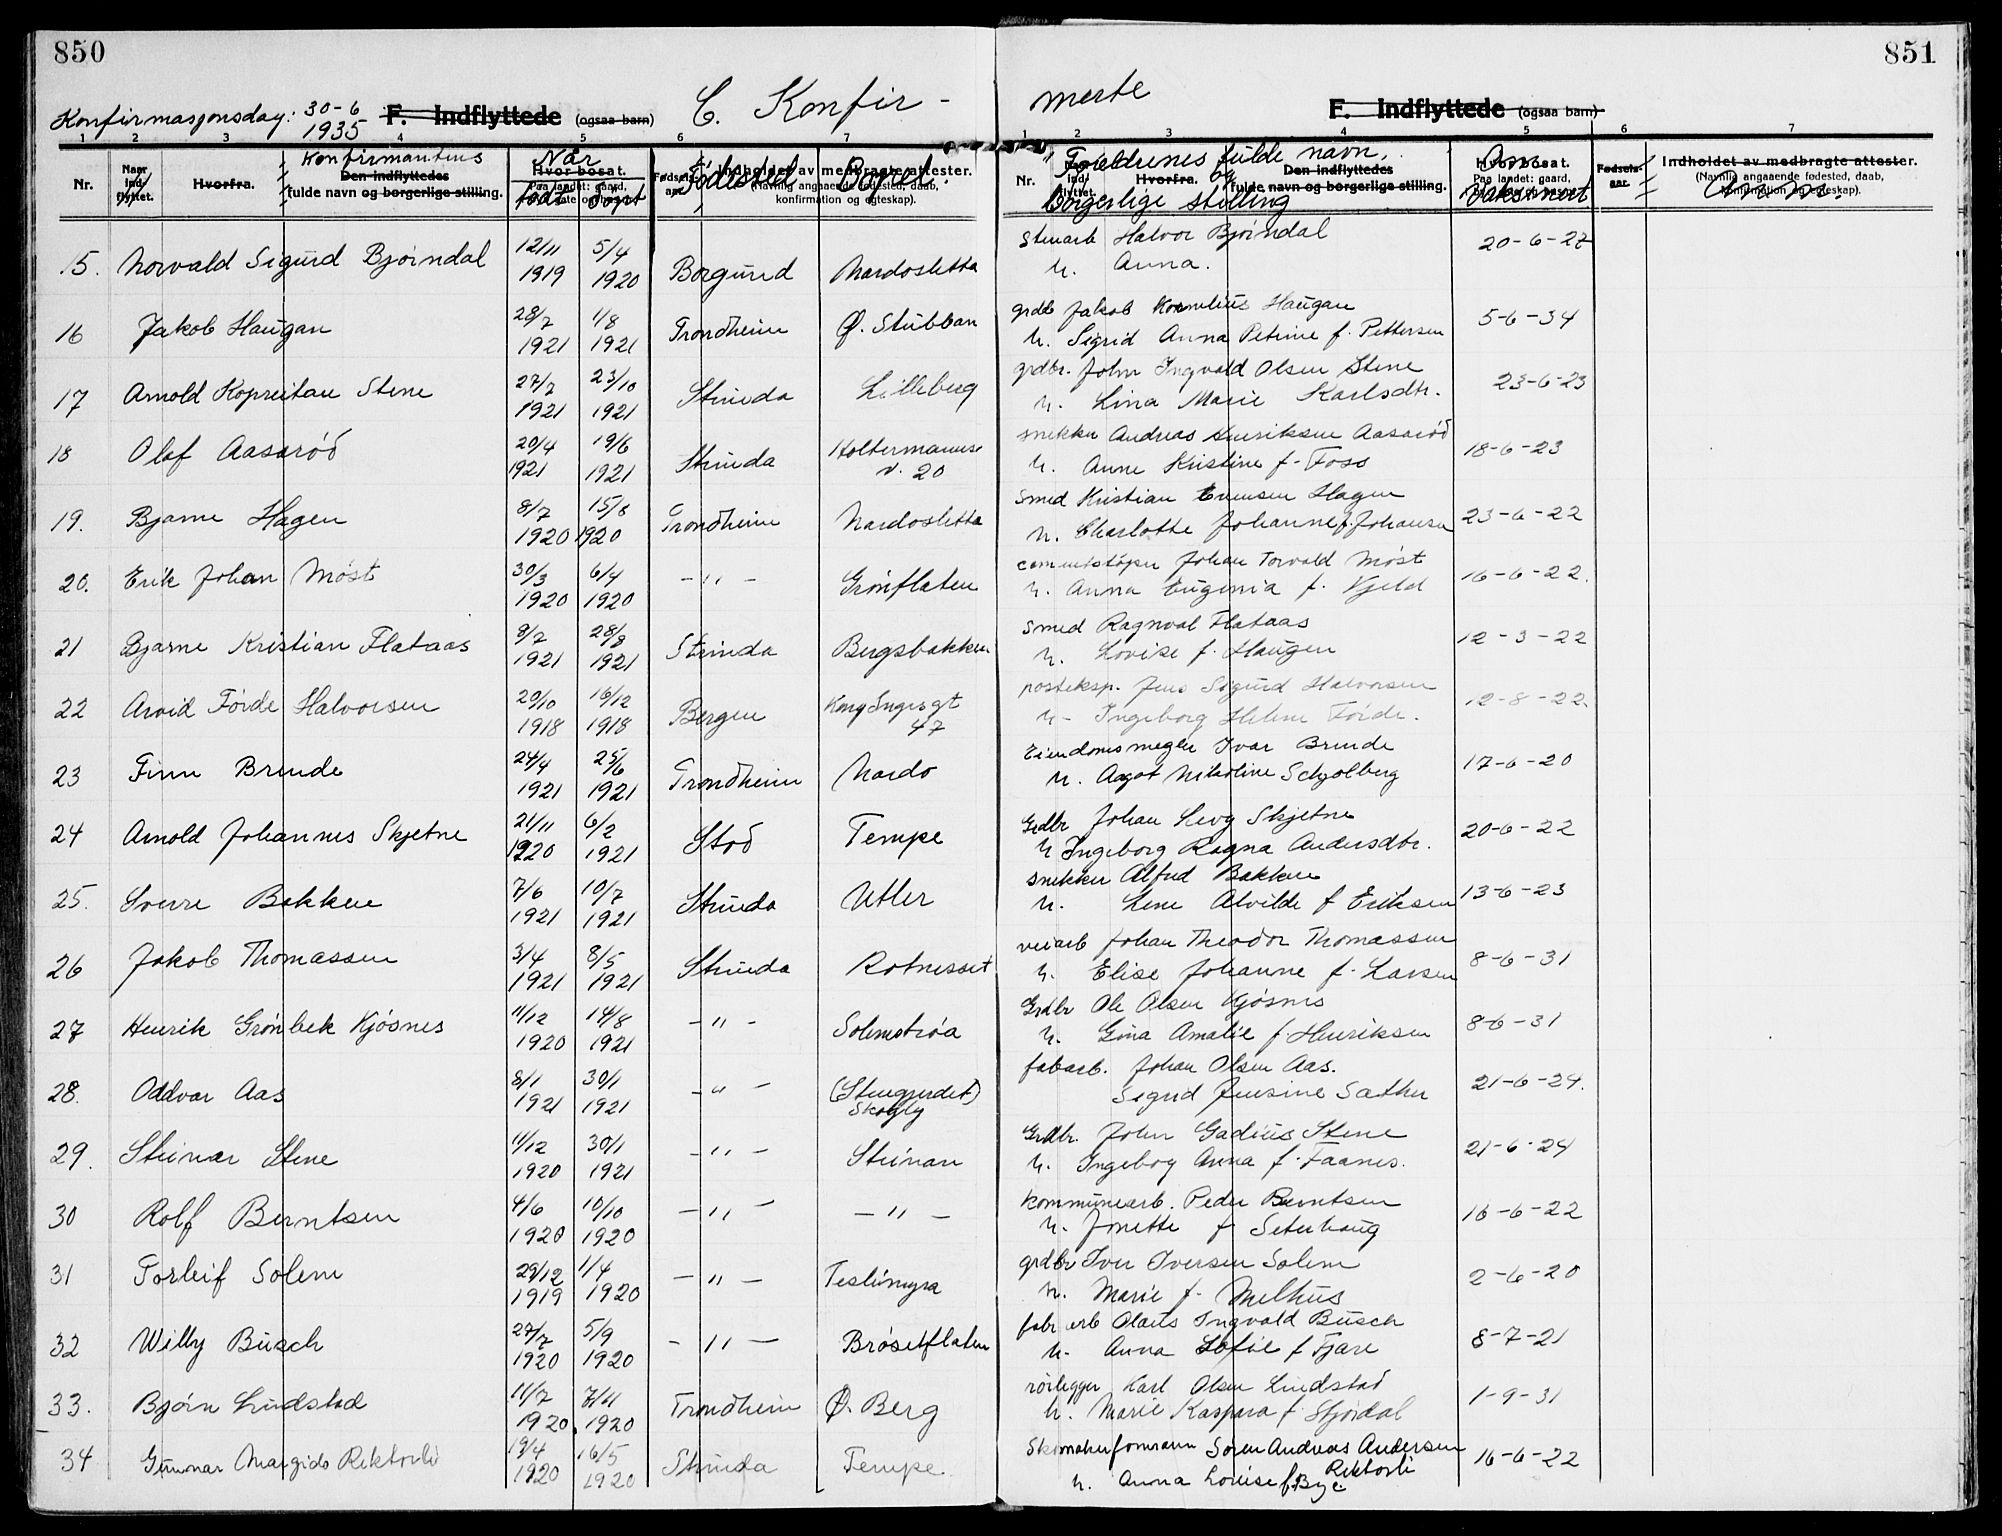 850
851
Konfirmasjonsdag: 30-6 1935
F. Indflyttede (ogsaa barn)
C. Konfir-
merte
F. Indflyttede (ogsaa barn)
1 2 3 4 5 6 7
1 2 3 4 5 6 7
Nr. Naar ind-flyttet. Hvorfra. Konfirmantens Den indflyttedes fulde navn og borgerlige stilling. Når Hvor bosat. født døpt Fødested Indholdet av medbragte attester. (Navnlig angaaende fødested, daab, konfirmation og egteskap). Bopel.
Nr. Foreldrenes fulde navn, og borgerlige stilling Hvorfra. Den indflyttedes fulde navn og borgerlige stilling. Hvor bosat. Paa landet: gaard, Vaksinert Fødsels-aar. Indholdet av medbragte attester. (Navnlig angaaende fødested, daab, konfirmation og egteskap).
15. Norvald Sigurd Bjørndal 12/11 1919 5/4 1920 Borgund Nardosletta Stenarb Halvor Bjørndal 20-6-27
h. Anna.
16 Jakob Haugan 28/7 1921 1/8 1921 Trondheim Ø. Stubban grdb Jakob Kornelius Haugan 5-6-34
h. Sigrid Anna Petrine f. Pettersen
17 Arnold Kopreitan Stene 27/7 1921 23/10 1921 Strinda Lilleberg grdbr. John Ingvald Olsen Stene 23-6-23
h. Lina Marie Karlsdtr.
18 Olaf Aasarød 20/4 1921 19/6 1921 Strinda Koltermannsv. 20 snekker Andreas Henriksen Aasarød 18-6-23
h. Anne Kristine f. Foss
19. Bjarne Hagen 8/7 1920 15/8 1920 Trondheim Nardosletta Smed Kristian Evensen Hagen 23-6-22
h. Charlotte Johanne f. Johansen
20. Erik Johan Møst 30/3 1920 6/4 1920 -"- Grønflaten cementstøper Johan Torvald Møst 16-6-22.
h. Anna Eugenia f. Vjeld
21 Bjarne Kristian Flataas 9/7 1921 28/8 1921 Strinda Bergsbakken Smed Ragnval Flataas 12-3-22
h. Lovise f. Haugen
22 Arvid Førde Halvorsen 29/10 1918 16/12 1918 Bergen Kong Inges gt 47 posteksp. Jens Sigurd Halvorsen 12-8-22.
h- Ingeborg Helene Førde.
23 Finn Brende 24/4 1921 25/6 1921 Trondheim Nardo Eiendomsmegler Ivar Brende 17-6-20
h. Aagot Nikoline Schjolberg
24 Arnold Johannes Skjetne 21/11 1920 6/2 1921 Stod Tempe Grdbr Johan Levy Skjetne 20-6-22
h Ingeborg Ragna Andersdtr.
25. Sverre Bakken 7/6 1921 10/7 1921 Strinda Utler snekker Alfred Bakken 13-6-23
h. Lene Alvilde f Eriksen
26 Jakob Thomassen 3/4 1921 8/5 1921 Strinda Rotnesset veiarb Johan Theodor Thomassen 8-6-31
h. Elise Johanne f. Larsen
27 Henrik Grønbek Kjøsnes 11/12 1920 14/8 1921 -"- Solemstrøa Grdbr Ole Olsen Kjøsnes 8-6-31
h. Gina Amalie f. Henriksen
28. Oddvar Aas 8/1 1921 30/1 1921 -"- (Stengjerdet) Skogly fabarb. Johan Olsen Aas. 21-6-24.
Sigrid Jensine Sæther
29. Steinar Stene 11/12 1920 30/1 1921 -"- Steinan Grdbr. John Gadius Stene 21-6-24
h. Ingeborg Anna f. Faanes.
30 Rolf Berntsen 4/6 1920 10/10 1920 -"- -"- Kommunearb. Peder Berntsen 16-6-22
h. Jonette f Seterhaug
31 Torleif Solem 29/12 1919 1/4 1920 -"- Teslimyra grdbr Iver Iversen Solem 2-6-20
h. Marie f. Melhus
32 Willy Busch 27/7 1920 5/9 1920 -"- Brøsetflaten fabr arb Olaus Ingvald Busch 8-7-21
h. Anna Sofie f Fjare
33. Bjørn Lindstad 11/7 1920 7/11 1920 Trondheim Ø. Berg rørlegger Karl Olsen Lindstad 1-9-31
h. Marie Kaspara f. Stjørdal
34 Gunnar Margido Rektorli 19/4 1920 16/5 1920 Strinda Tempe. Skomakerformann Søren Andreas Andersen Rektorli 16-6-22
h. Anna Louise f. Bye